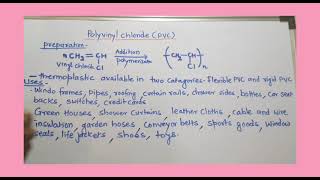 Polyvinyl chloride (PVC)
preparation-
nCH2=CH Addition (CH2-CH)n
vinyl chloride Cl polymerisation Cl
- thermoplastic available in two Categories- flexible PVC and rigid PVC
Uses-
- Windo frames, Pipes, roofing, curtain rails, drawer sides, bottles, Car seat
backs, switches, credit cards
Green Houses, shower Curtains leather Cloths, cable and wire
insulation, garden hoses conveyor belts, sports goods, window
seals, life jackets, shoes, toys.